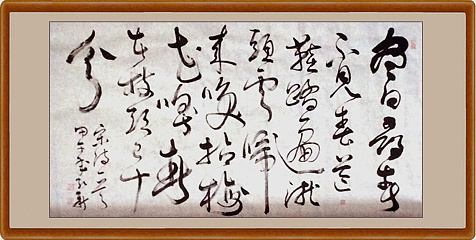 尽日寻春
不见春芒
鞋踏遍陇
头云归
来咲拈梅
花嗅春
在枝头已十
分
宋诗一首
甲午